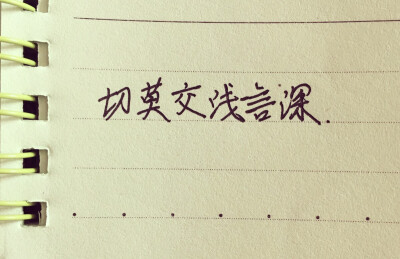 切莫交浅言深.